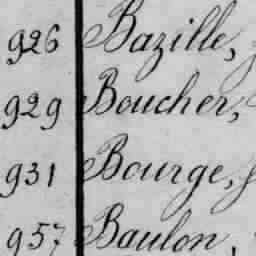 926 Bazille,
929 Boucher,
931 Bourge,
957 Baulon,